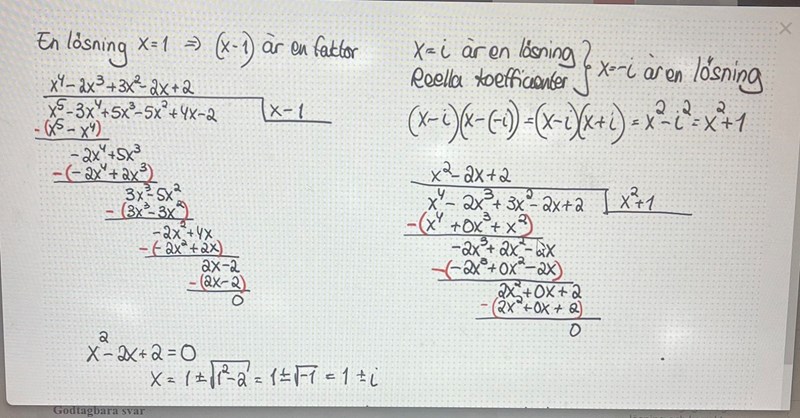 En lösning x=1 ⇒ (x-1) är en faktor
x⁴-2x³+3x²-2x+2
x⁵-3x⁴+5x³-5x²+4x-2 | x-1
-(x⁵-x⁴)
-2x⁴+5x³
-(-2x⁴+2x³)
3x³-5x²
-(3x³-3x²)
-2x²+4x
-(-2x²+2x)
2x-2
-(2x-2)
0
x²-2x+2=0
x = 1±√(1²-2) = 1±√-1 = 1±i
x=i är en lösning
Reella koefficienter } x=-i är en lösning
(x-i)(x-(-i))=(x-i)(x+i) = x²-i²=x²+1
x²-2x+2
x⁴-2x³+3x²-2x+2 | x²+1
-(x⁴+0x³+x²)
-2x³+2x²-2x
-(-2x³+0x²-2x)
2x²+0x+2
-(2x²+0x+2)
0
Godtagbara svar